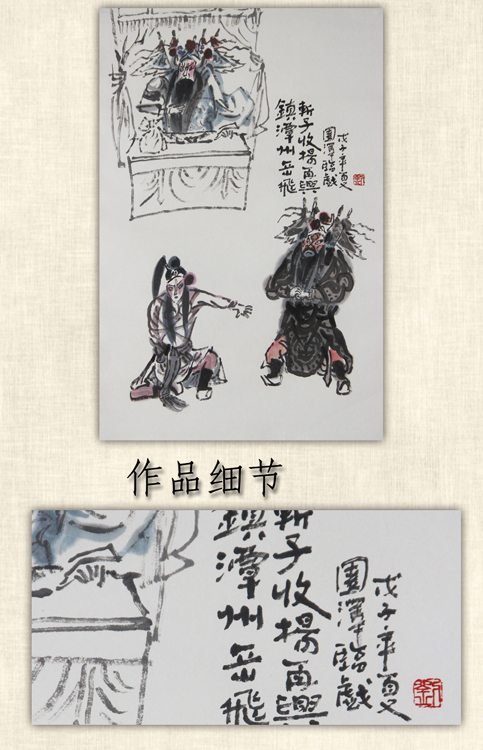 鎮潭州岳飛
斬子收楊再興
澤臨戲
戊子年夏
作品细节
鎮潭州岳飛
斬子收楊再興
澤臨戲
戊子年夏